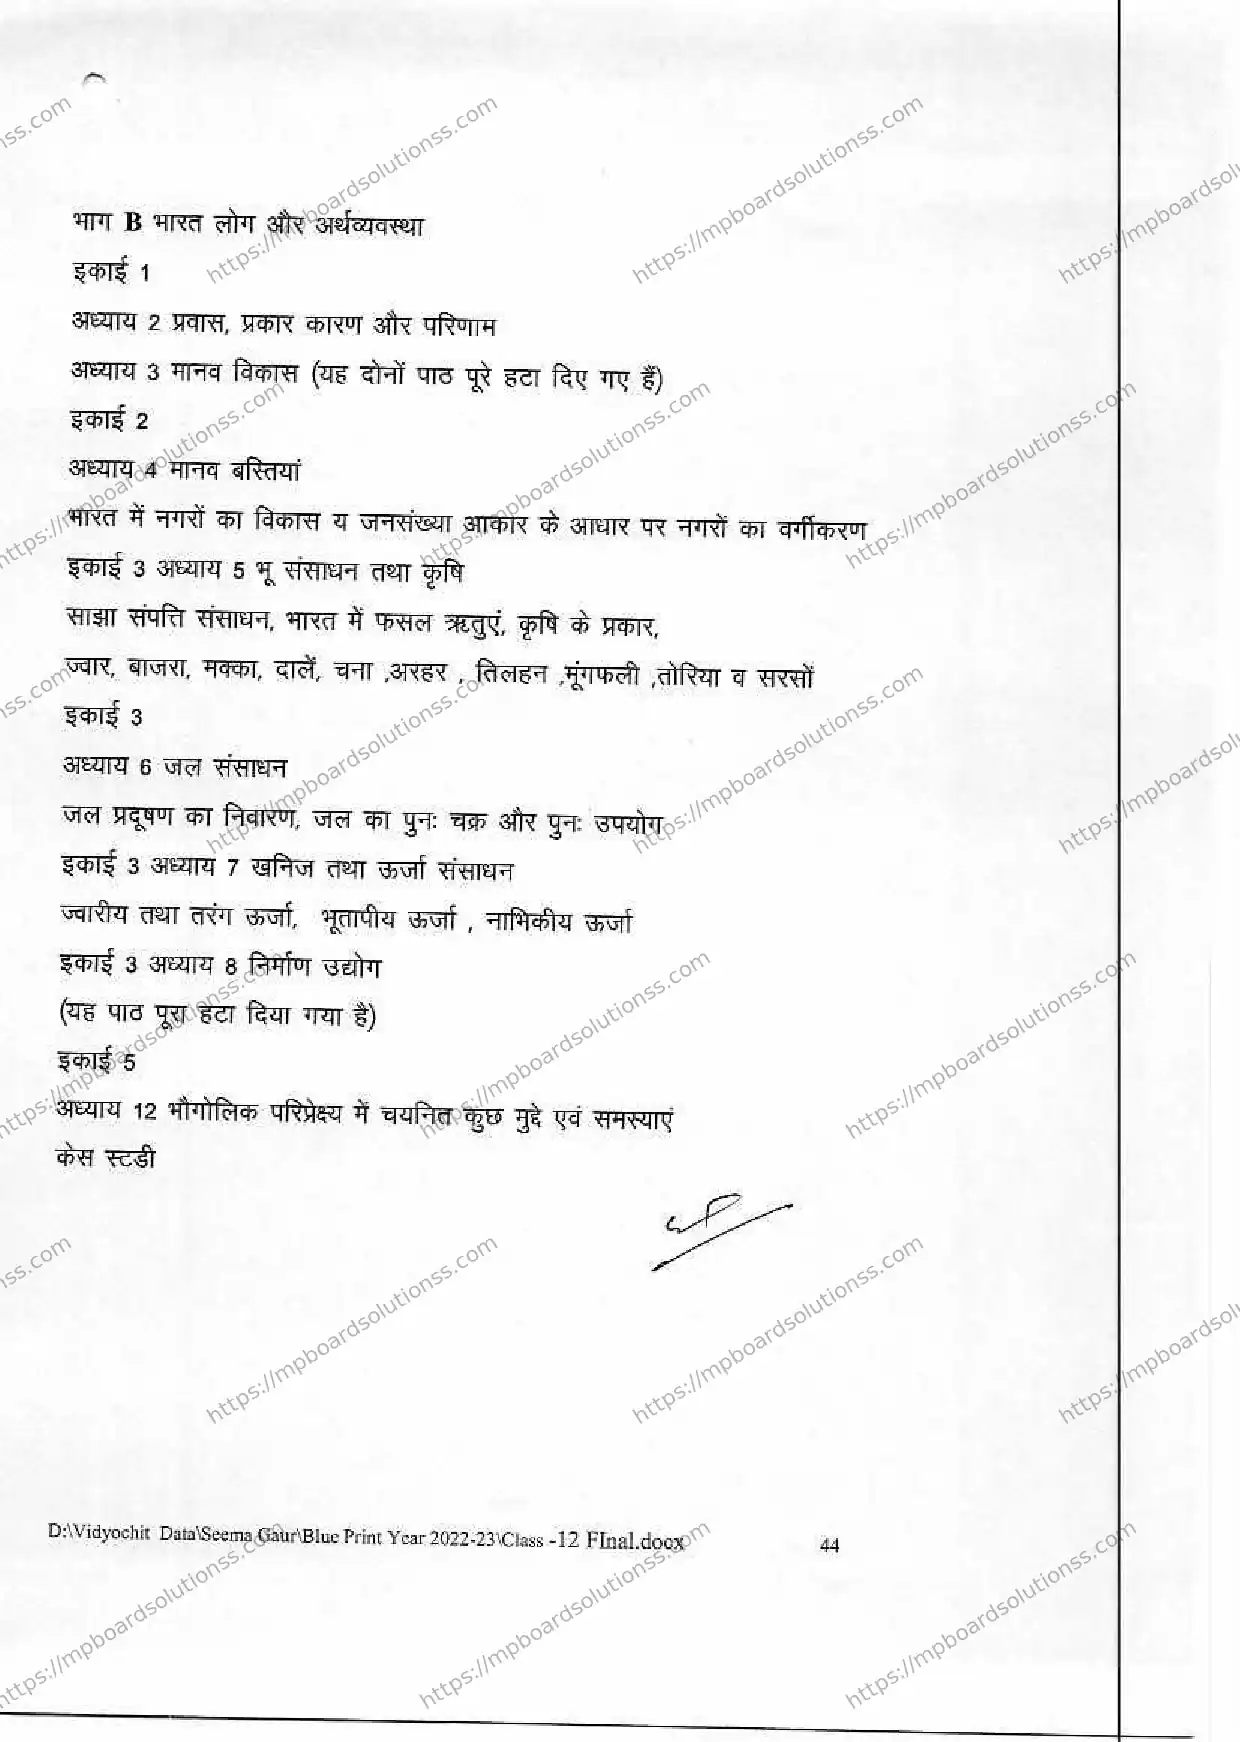 भाग B भारत लोग और अर्थव्यवस्था
इकाई 1
अध्याय 2 प्रवास, प्रकार कारण और परिणाम
अध्याय 3 मानव विकास (यह दोनों पाठ पूरे हटा दिए गए हैं)
इकाई 2
अध्याय 4 मानव बस्तियां
भारत में नगरों का विकास य जनसंख्या आकार के आधार पर नगरों का वर्गीकरण
इकाई 3 अध्याय 5 भू संसाधन तथा कृषि
साझा संपत्ति संसाधन, भारत में फसल ऋतुएं, कृषि के प्रकार,
ज्वार, बाजरा, मक्का, दालें, चना ,अरहर , तिलहन ,मूंगफली ,तोरिया व सरसों
इकाई 3
अध्याय 6 जल संसाधन
जल प्रदूषण का निवारण, जल का पुनः चक्र और पुनः उपयोग
इकाई 3 अध्याय 7 खनिज तथा ऊर्जा संसाधन
ज्वारीय तथा तरंग ऊर्जा, भूतापीय ऊर्जा , नाभिकीय ऊर्जा
इकाई 3 अध्याय 8 निर्माण उद्योग
(यह पाठ पूरा हटा दिया गया है)
इकाई 5
अध्याय 12 भौगोलिक परिप्रेक्ष्य में चयनित कुछ मुद्दे एवं समस्याएं
केस स्टडी
D:\Vidyochit Data\Seema Gaur\Blue Print Year 2022-23\Class -12 FInal.docx 44
https://mpboardsolutionss.com